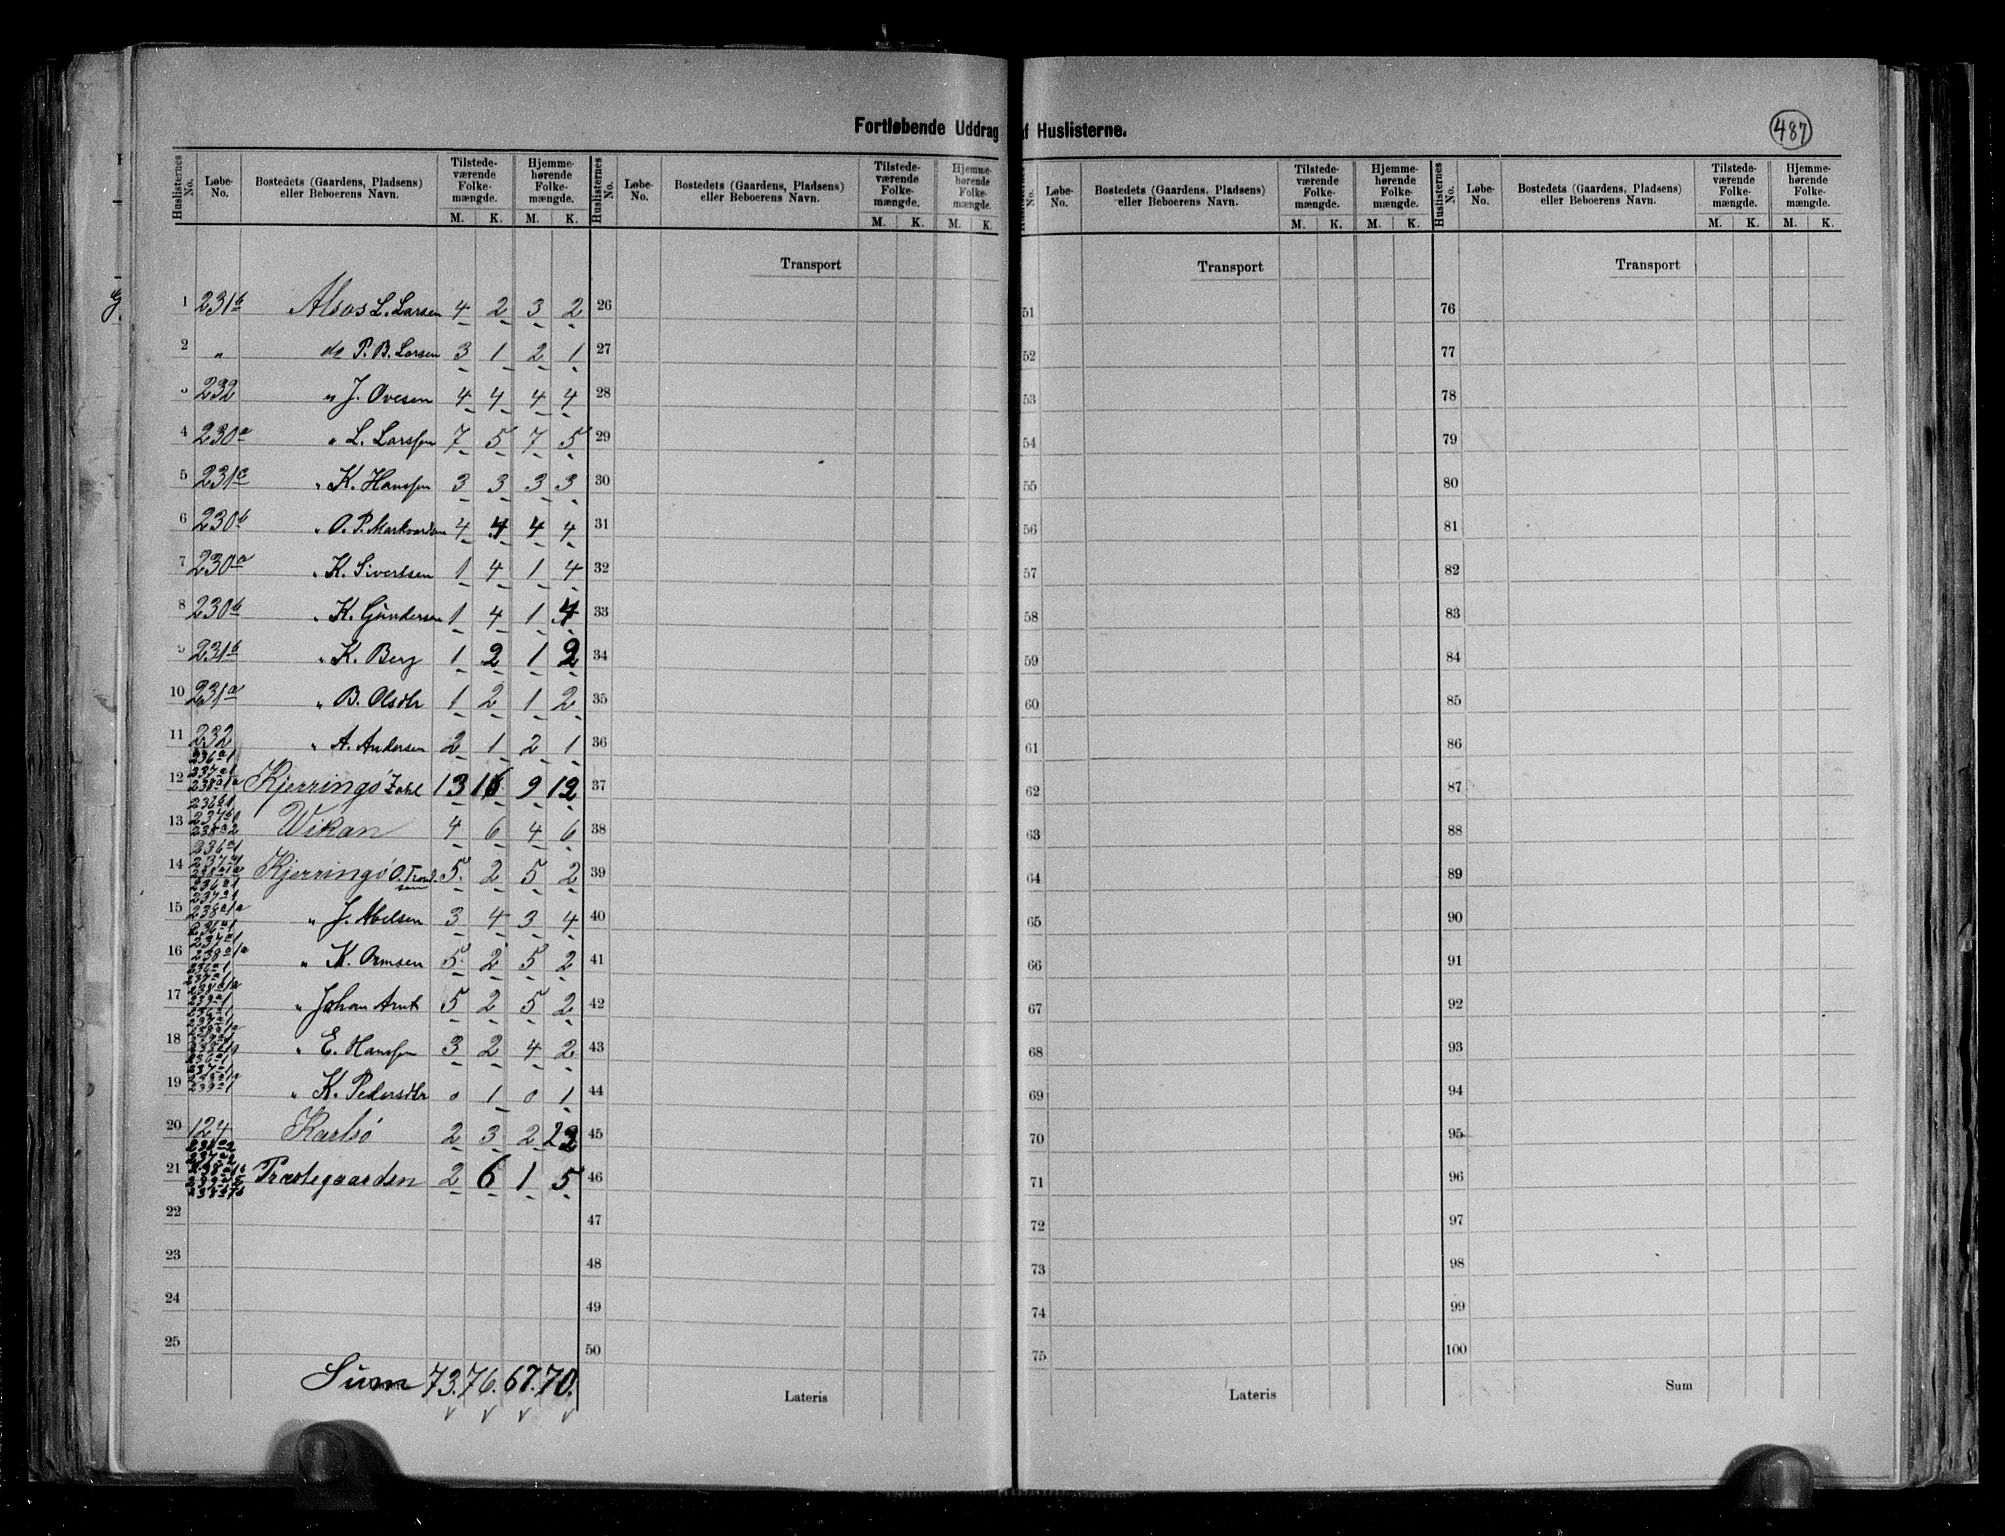 Fortløbende Uddrag af Huslisterne.
487
Huslisternes No. Løbe-No. Bostedets (Gaardens, Pladsens) eller Beboerens Navn. Tilstedeværende Folkemængde. M. K. Hjemmehørende Folkemængde. M. K.
Huslisternes No. Løbe-No. Bostedets (Gaardens, Pladsens) eller Beboerens Navn. Tilstedeværende Folkemængde. M. K. Hjemmehørende Folkemængde. M. K.
No. Løbe-No. Bostedets (Gaardens, Pladsens) eller Beboerens Navn. Tilstedeværende Folkemængde. M. K. Hjemmehørende Folkemængde. M. K.
Huslisternes No. Løbe-No. Bostedets (Gaardens, Pladsens) eller Beboerens Navn. Tilstedeværende Folkemængde. M. K. Hjemmehørende Folkemængde. M. K.
Transport Transport Transport
1 231b Alsos L. Larsen 4 2 3 2 26 51 76
2 " do P. B. Larsen 3 1 2 1 27 52 77
3 232 " J. Ovesen 4 4 4 4 28 53 78
4 230a " L. Larssen 7 5 7 5 29 54 79
5 231a " K. Hanssen 3 3 3 3 30 55 80
6 230b " O. P. Markvardsen 4 4 4 4 31 56 81
7 230a " K. Sivertsen 1 4 1 4 32 57 82
8 230b " K. Gundersen 1 4 1 4 33 58 83
9 231b " K. Berg 1 2 1 2 34 59 84
10 231a " B. Olsdtr 1 2 1 2 35 60 85
11 232 " A. Andersen 2 1 2 1 36 61 86
12 Kjerringö Zahl 13 16 9 12 37 62 87
13 Wikan 4 6 4 6 38 63 88
14 Kjerringö O. Trondsen 5 2 5 2 39 64 89
15 " J. Abelsen 3 4 3 4 40 65 90
16 " K. Ormsen 5 2 5 2 41 66 91
17 " Johan Arnt 5 2 5 2 42 67 92
18 " E. Hanssen 3 2 4 2 43 68 93
19 " K. Pedersdtr 0 1 0 1 44 69 94
20 124 Karlsö 2 3 2 2 45 70 95
21 Præstegaarden 2 6 1 5 46 71 96
22 47 72 97
23 48 73 98
24 49 74 99
25 50 75 100
Sum 73. 76. 67. 70.
Lateris Lateris Sum